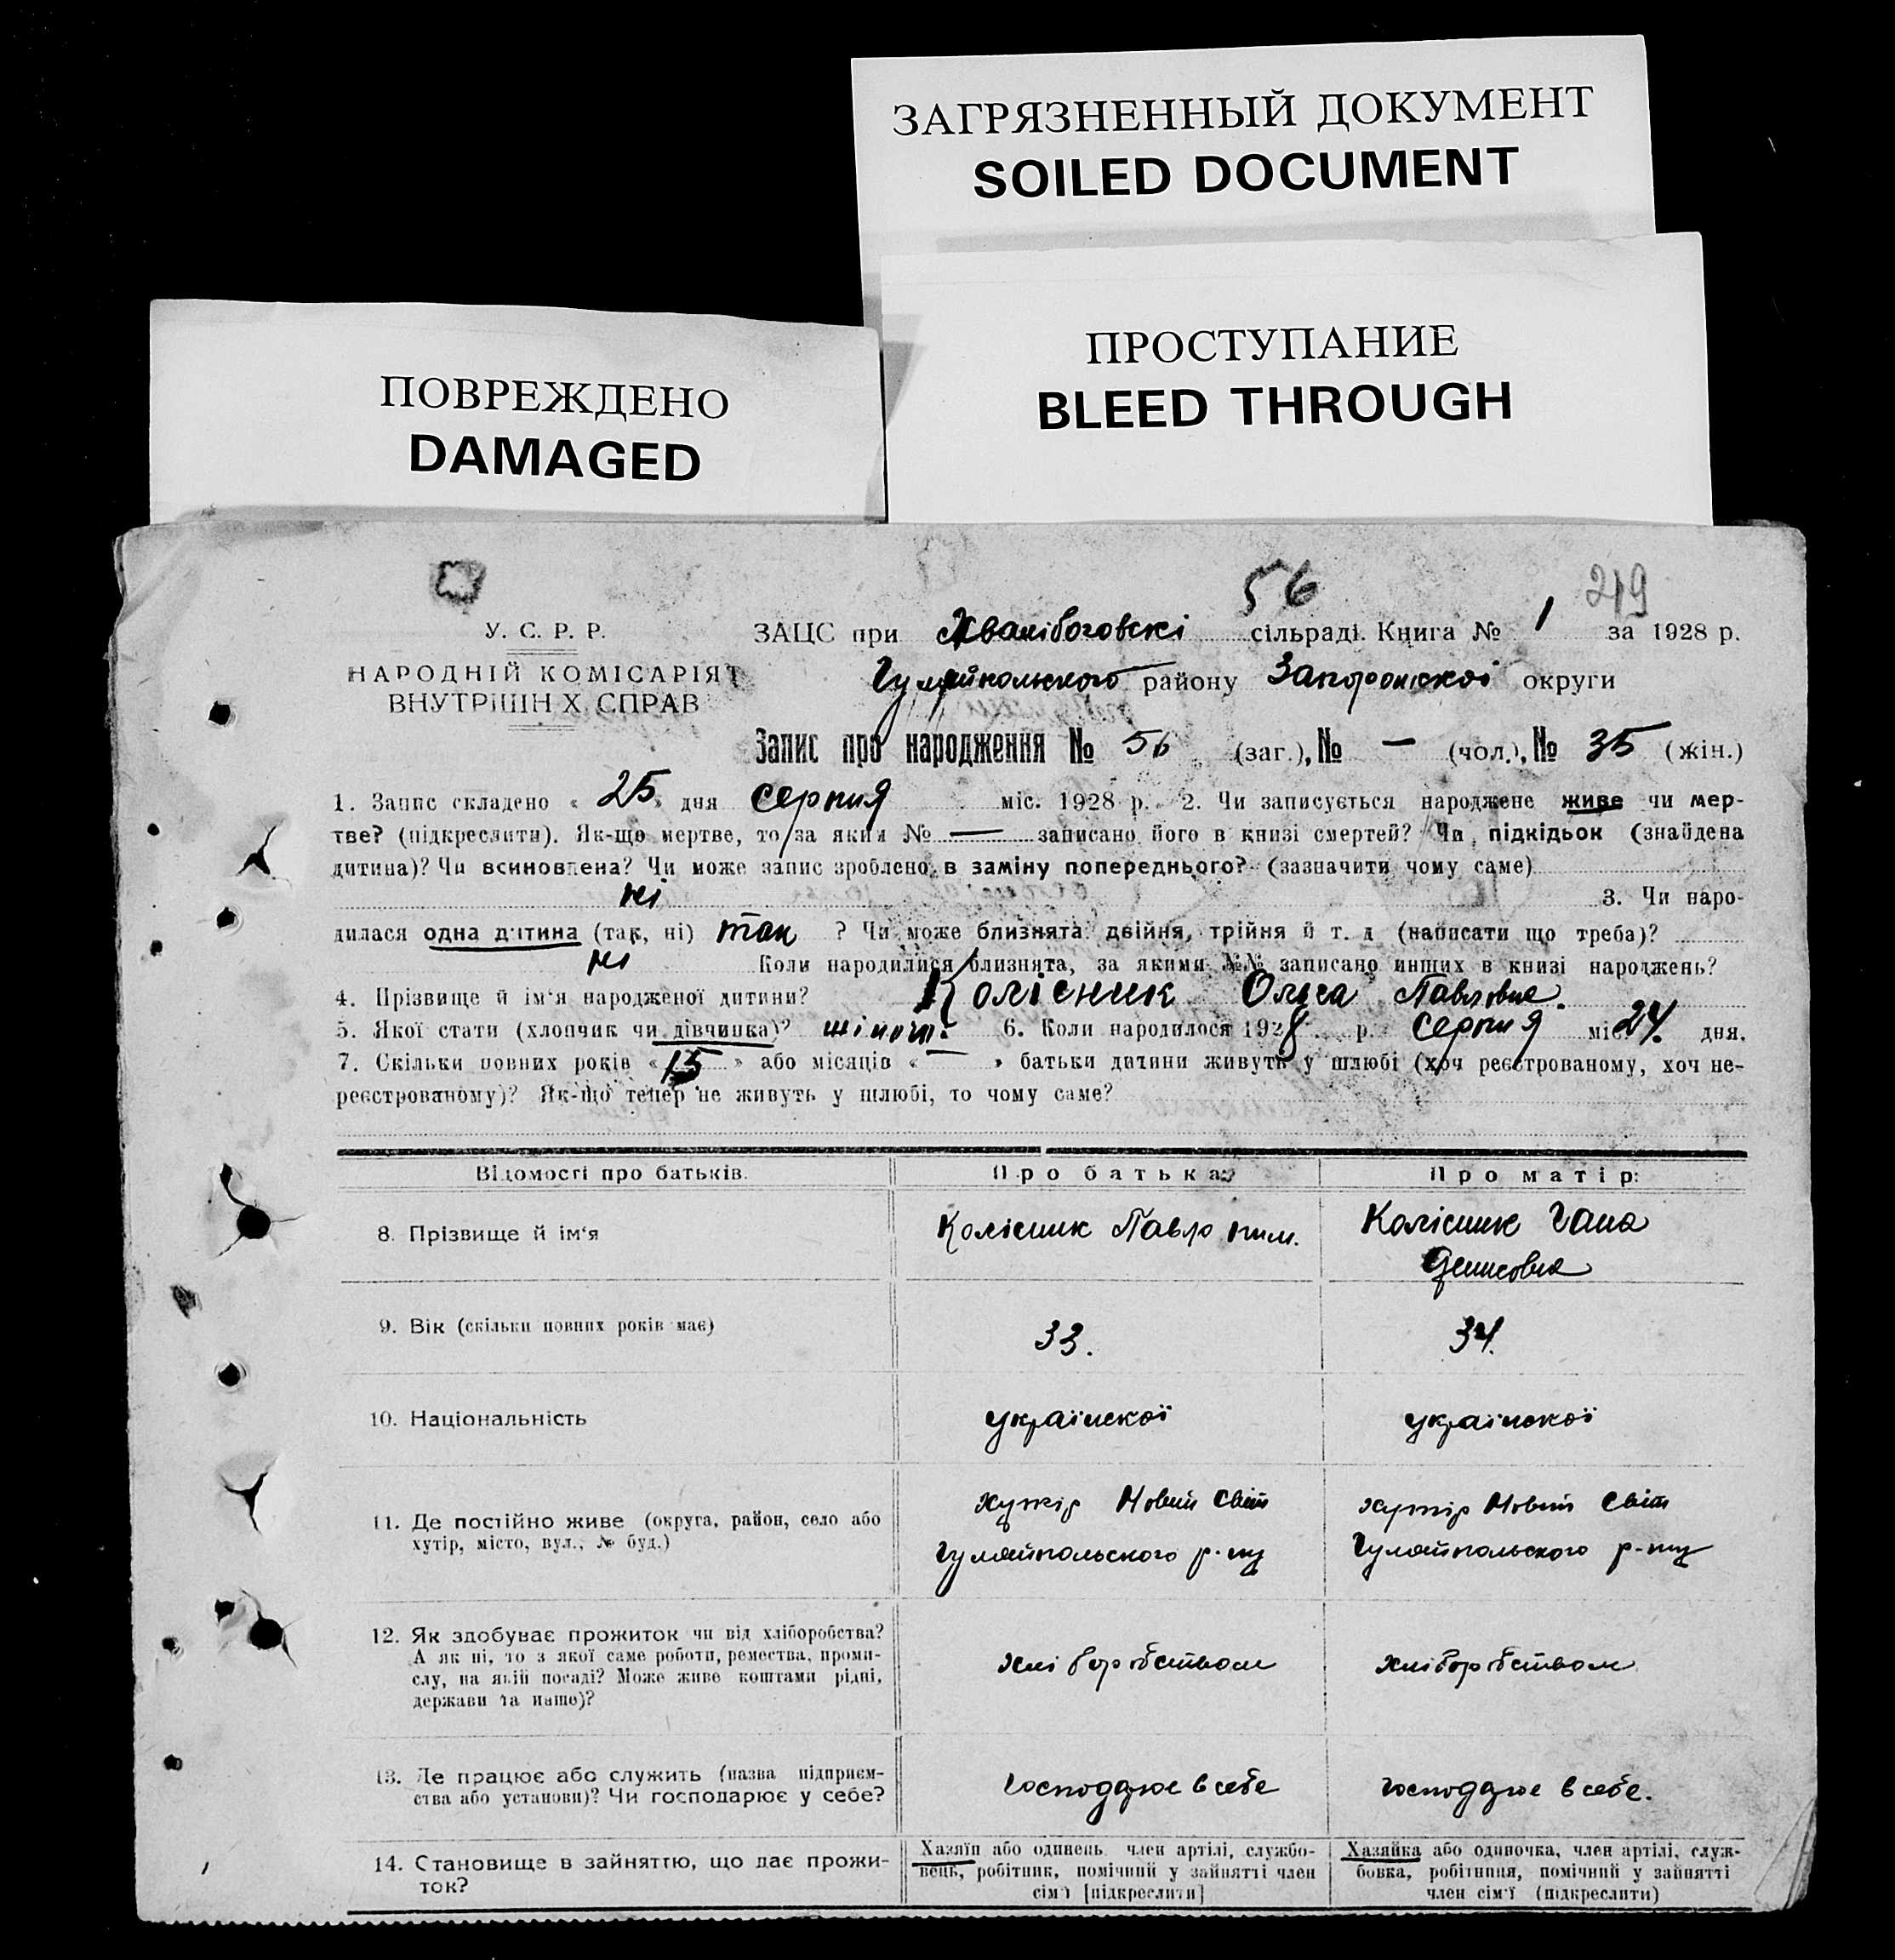 ЗАГРЯЗНЕННЫЙ ДОКУМЕНТ
SOILED DOCUMENT
ПРОСТУПАНИЕ
BLEED THROUGH
ПОВРЕЖДЕНО
DAMAGED
56 219
У. С. Р. Р.
НАРОДНІЙ КОМІСАРІЯТ
ВНУТРІШН Х СПРАВ
ЗАЦС при Хвалібоговскі сільраді. Книга № 1 за 1928 р.
Гуляйпольського району Запорожскоі округи
Запис про народження № 56 (заг.), № — (чол.), № 35 (жін.)
1. Запис складено « 25 » дня серпня міс. 1928 р. 2. Чи записується народжене живе чи мер-
тве? (підкреслити). Як-що мертве, то за яким № — записано його в книзі смертей? Чи підкідьок (знайдена
дитина)? Чи всиновлена? Чи може запис зроблено в заміну попереднього? (зазначити чому саме)
ні 3. Чи наро-
дилася одна дитина (так, ні) так ? Чи може близнята: двійня, трійня й т. д. (написати що треба)?
ні Коли народилися близнята, за якими №№ записано инших в книзі народжень?
4. Прізвище й ім'я народженої дитини? Колісник Ольга Павловна.
5. Якої стати (хлопчик чи дівчинка)? жіночи. 6. Коли народилося 1928 р. серпня міс. 24. дня.
7. Скільки повних років « 15 » або місяців « — » батьки дитини живуть у шлюбі (хоч реєстрованому, хоч не-
реєстрованому)? Як-що тепер не живуть у шлюбі, то чому саме?
Відомості про батьків. Про батька: Про матір:
8. Прізвище й ім'я Колісник Павло Колісник Гана
Денисовна
9. Вік (скільки повних років має) 33. 34.
10. Національність українскої українскої
11. Де постійно живе (округа, район, село або
хутір, місто, вул., № буд.)
хутір Новий Світ
Гуляйпольського р-ну
хутір Новий Світ
Гуляйпольського р-ну
12. Як здобуває прожиток чи від хліборобства?
А як ні, то з якої саме роботи, ремества, проми-
слу, на якій посаді? Може живе коштами рідні,
держави та инше)?
хліборобством хліборобством
13. Де працює або служить (назва підприєм-
ства або установи)? Чи господарює у себе?
господарює в себе господарює в себе.
14. Становище в зайняттю, що дає прожи-
ток?
Хазяїн або одинець, член артілі, службо-
вець, робітник, помічний у зайнятті член
сім'ї [підкреслити]
Хазяйка або одиночка, член артілі, служ-
бовка, робітниця, помічний у зайнятті
член сім'ї (підкреслити)